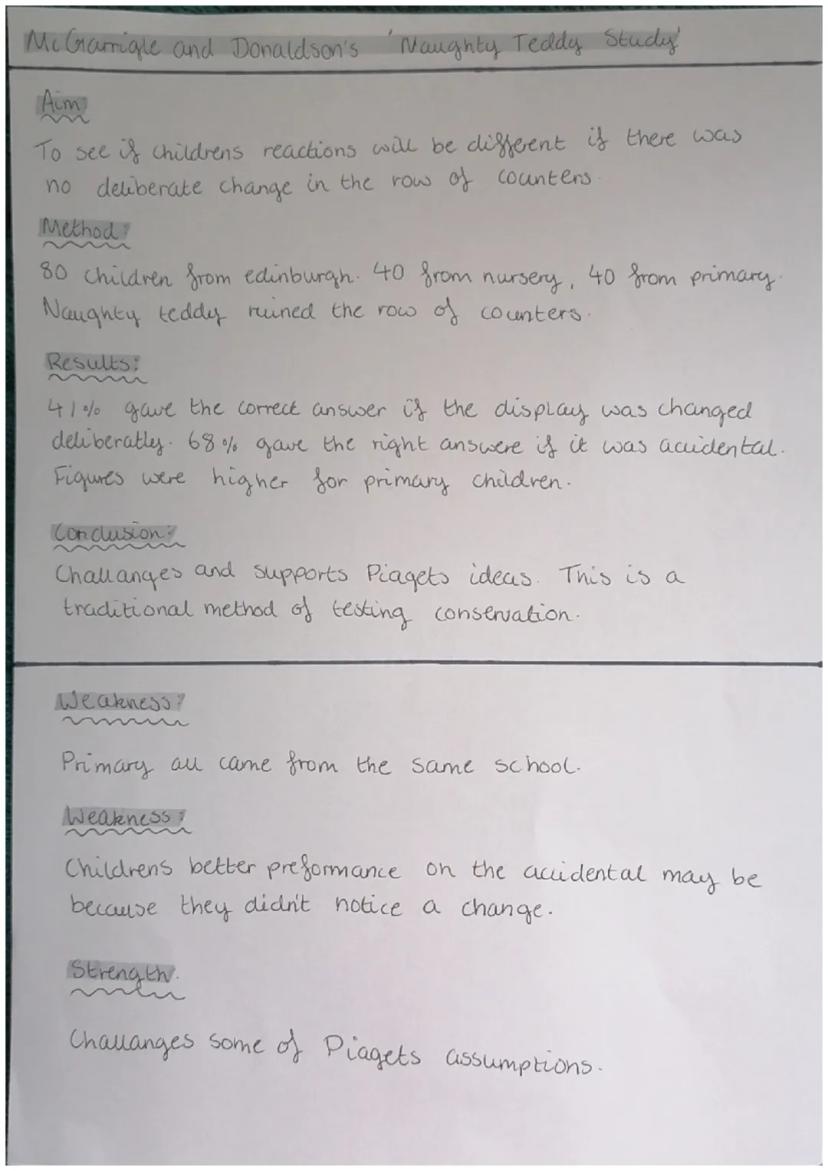 McGarrigle and Donaldson's 'Naughty Teddy Study'
Aim
To see if childrens reactions will be different if there was
no deliberate change in the row of counters.
Method:
80 children from edinburgh. 40 from nursery, 40 from primary.
Naughty teddy ruined the row of counters.
Results:
41% gave the correct answer if the display was changed
deliberatly. 68% gave the right answere if it was accidental.
Figures were higher for primary children.
Conclusion:
Challanges and supports Piagets ideas. This is a
traditional method of testing conservation.
Weakness:
Primary all came from the same school.
Weakness:
Childrens better preformance on the accidental may be
because they didn't notice a change.
Strength.
Challanges some of Piagets assumptions.